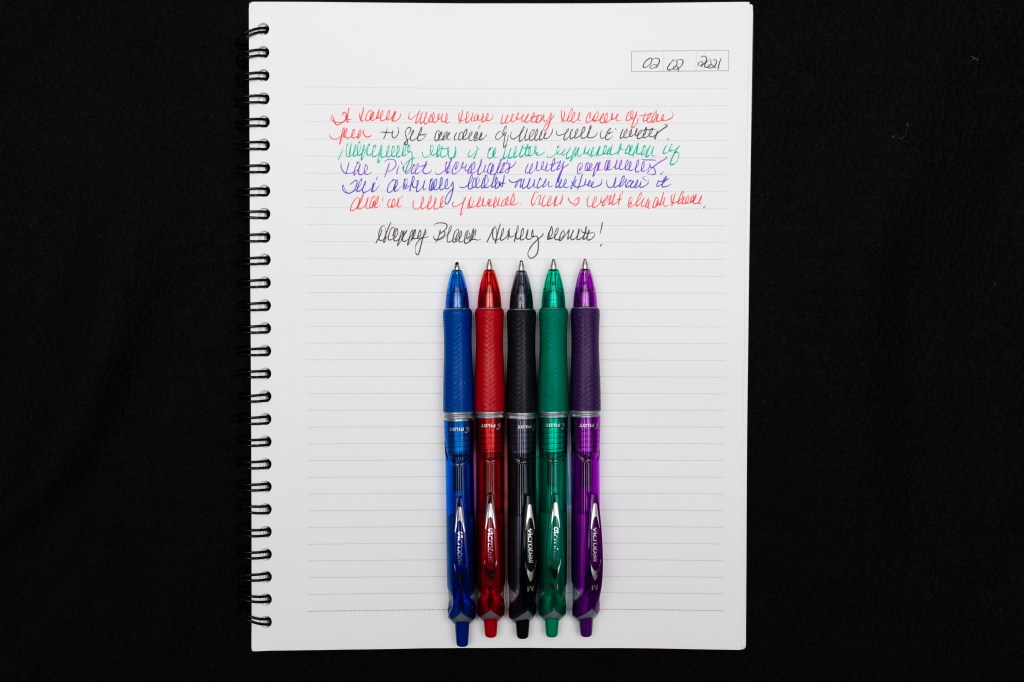 02 02 2021
It takes more than writing the color of the
pen to get an idea of how well it writes.
Hopefully this is a better representation of
the Pilot Acroball's writing capabilities.
This actually looks much better than it
did in the journal. Even went
Happy Black History Month!
PILOT
PILOT
PILOT
PILOT
PILOT
Acroball
Acroball
Acroball M
Acroball
Acroball M